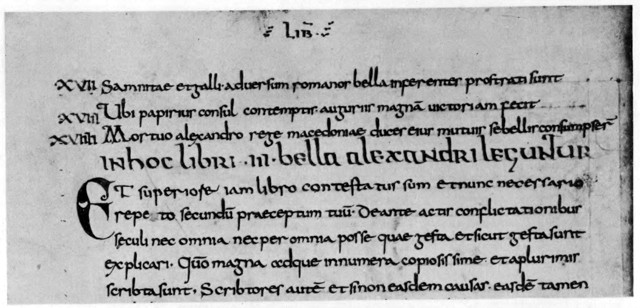 LIB̄
XVII Samnitae et galli aduersum romanos bella inferentes prostrati sunt
XVIII Ubi papirius consul contemptis auguriis magnā uictoriam fecit
XVIIII Mortuo alexandro rege macedoniae duces eius mutuis se bellis consumpser̄
IN HOC LIBRI · III · BELLA ALEXANDRI LEGUNTUR
ET superiore iam libro contestatus sum et nunc necessario
repeto secundū praeceptum tuū · De ante actis conflictationibus
seculi nec omnia nec per omnia posse quae gesta et sicut gesta sunt
explicari · Quō magna adque innumera copiosissime · et a plurimis
scribta sunt · Scribtores autē et si non easdem causas · easdē tamen